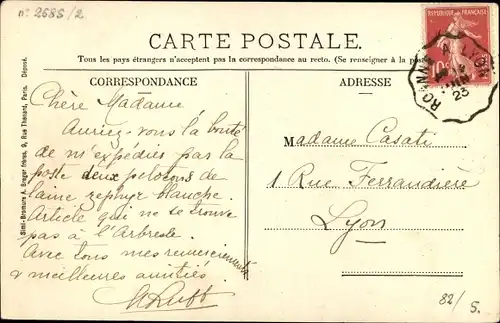 n° 2685/2
CARTE POSTALE.
Tous les pays étrangers n'acceptent pas la correspondance au recto. (Se renseigner à la poste
RÉPUBLIQUE FRANÇAISE
10c
ROANNE A LYON
23
CORRESPONDANCE
ADRESSE
Simi-Bromure A. Breger frères, 9, Rue Thénard, Paris. Déposé.
Chère Madame
Auriez-vous la bonté
de m'expédier par la
poste deux pelotons de
laine zephyr blanche.
Article qui ne se trouve
pas à l'Arbresle.
Avec tous mes remerciements
& meilleures amitiés.
Madame Casati
1 Rue Ferrandière
Lyon
82/5.